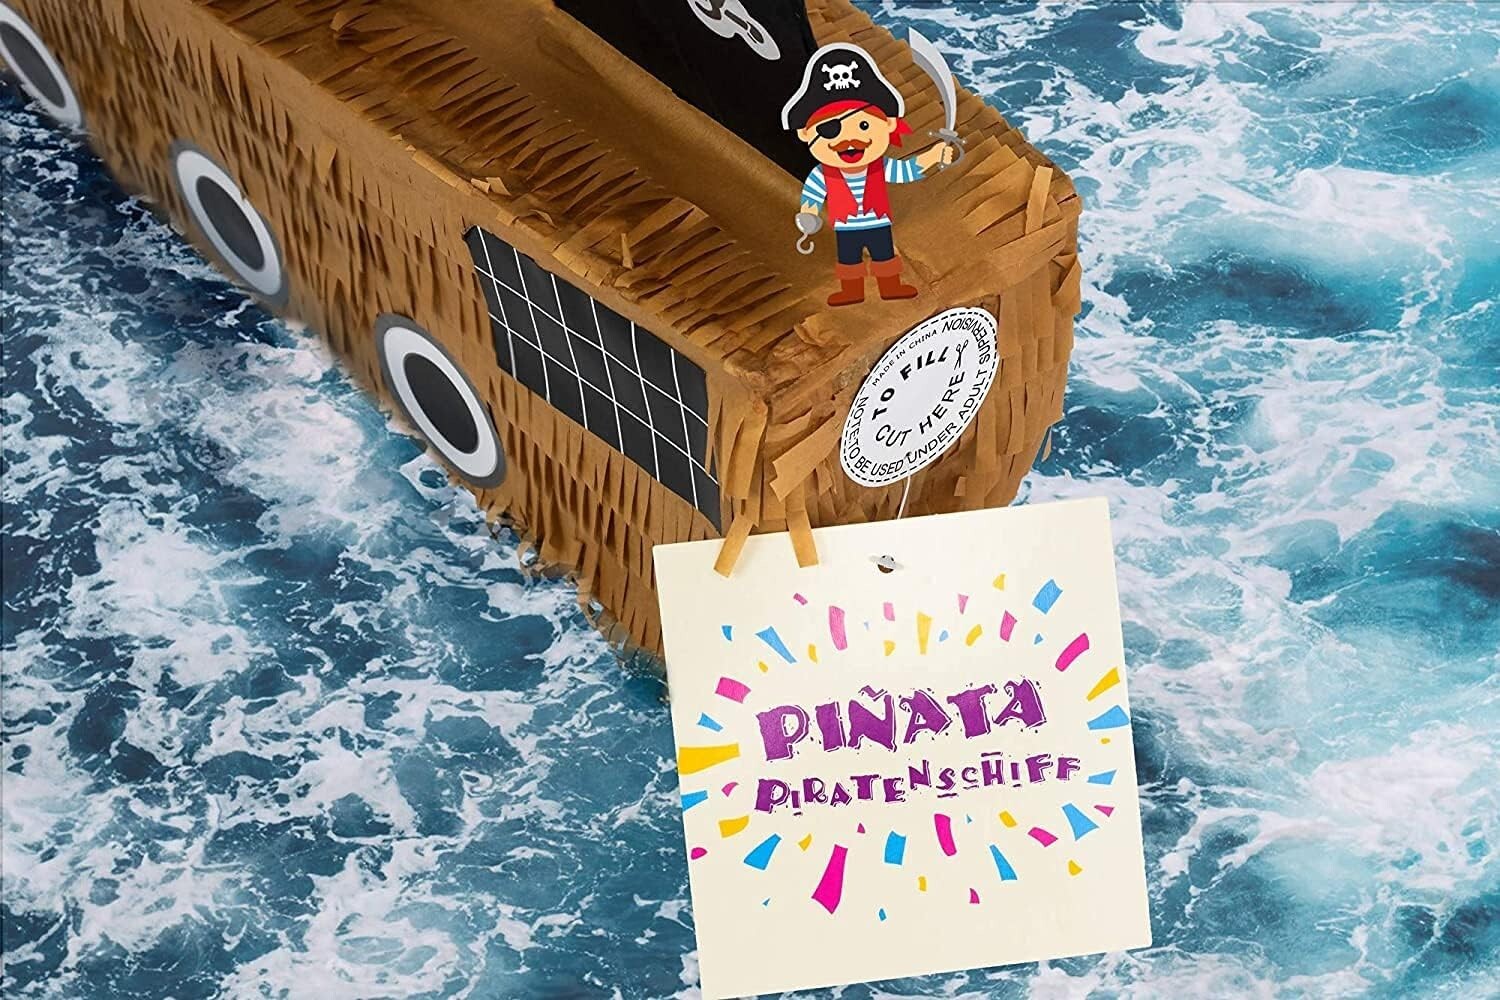 MADE IN CHINA
TO FILL
CUT HERE
NOTE:TO BE USED UNDER ADULT SUPERVISION
PIÑATA
PIRATENSCHIFF